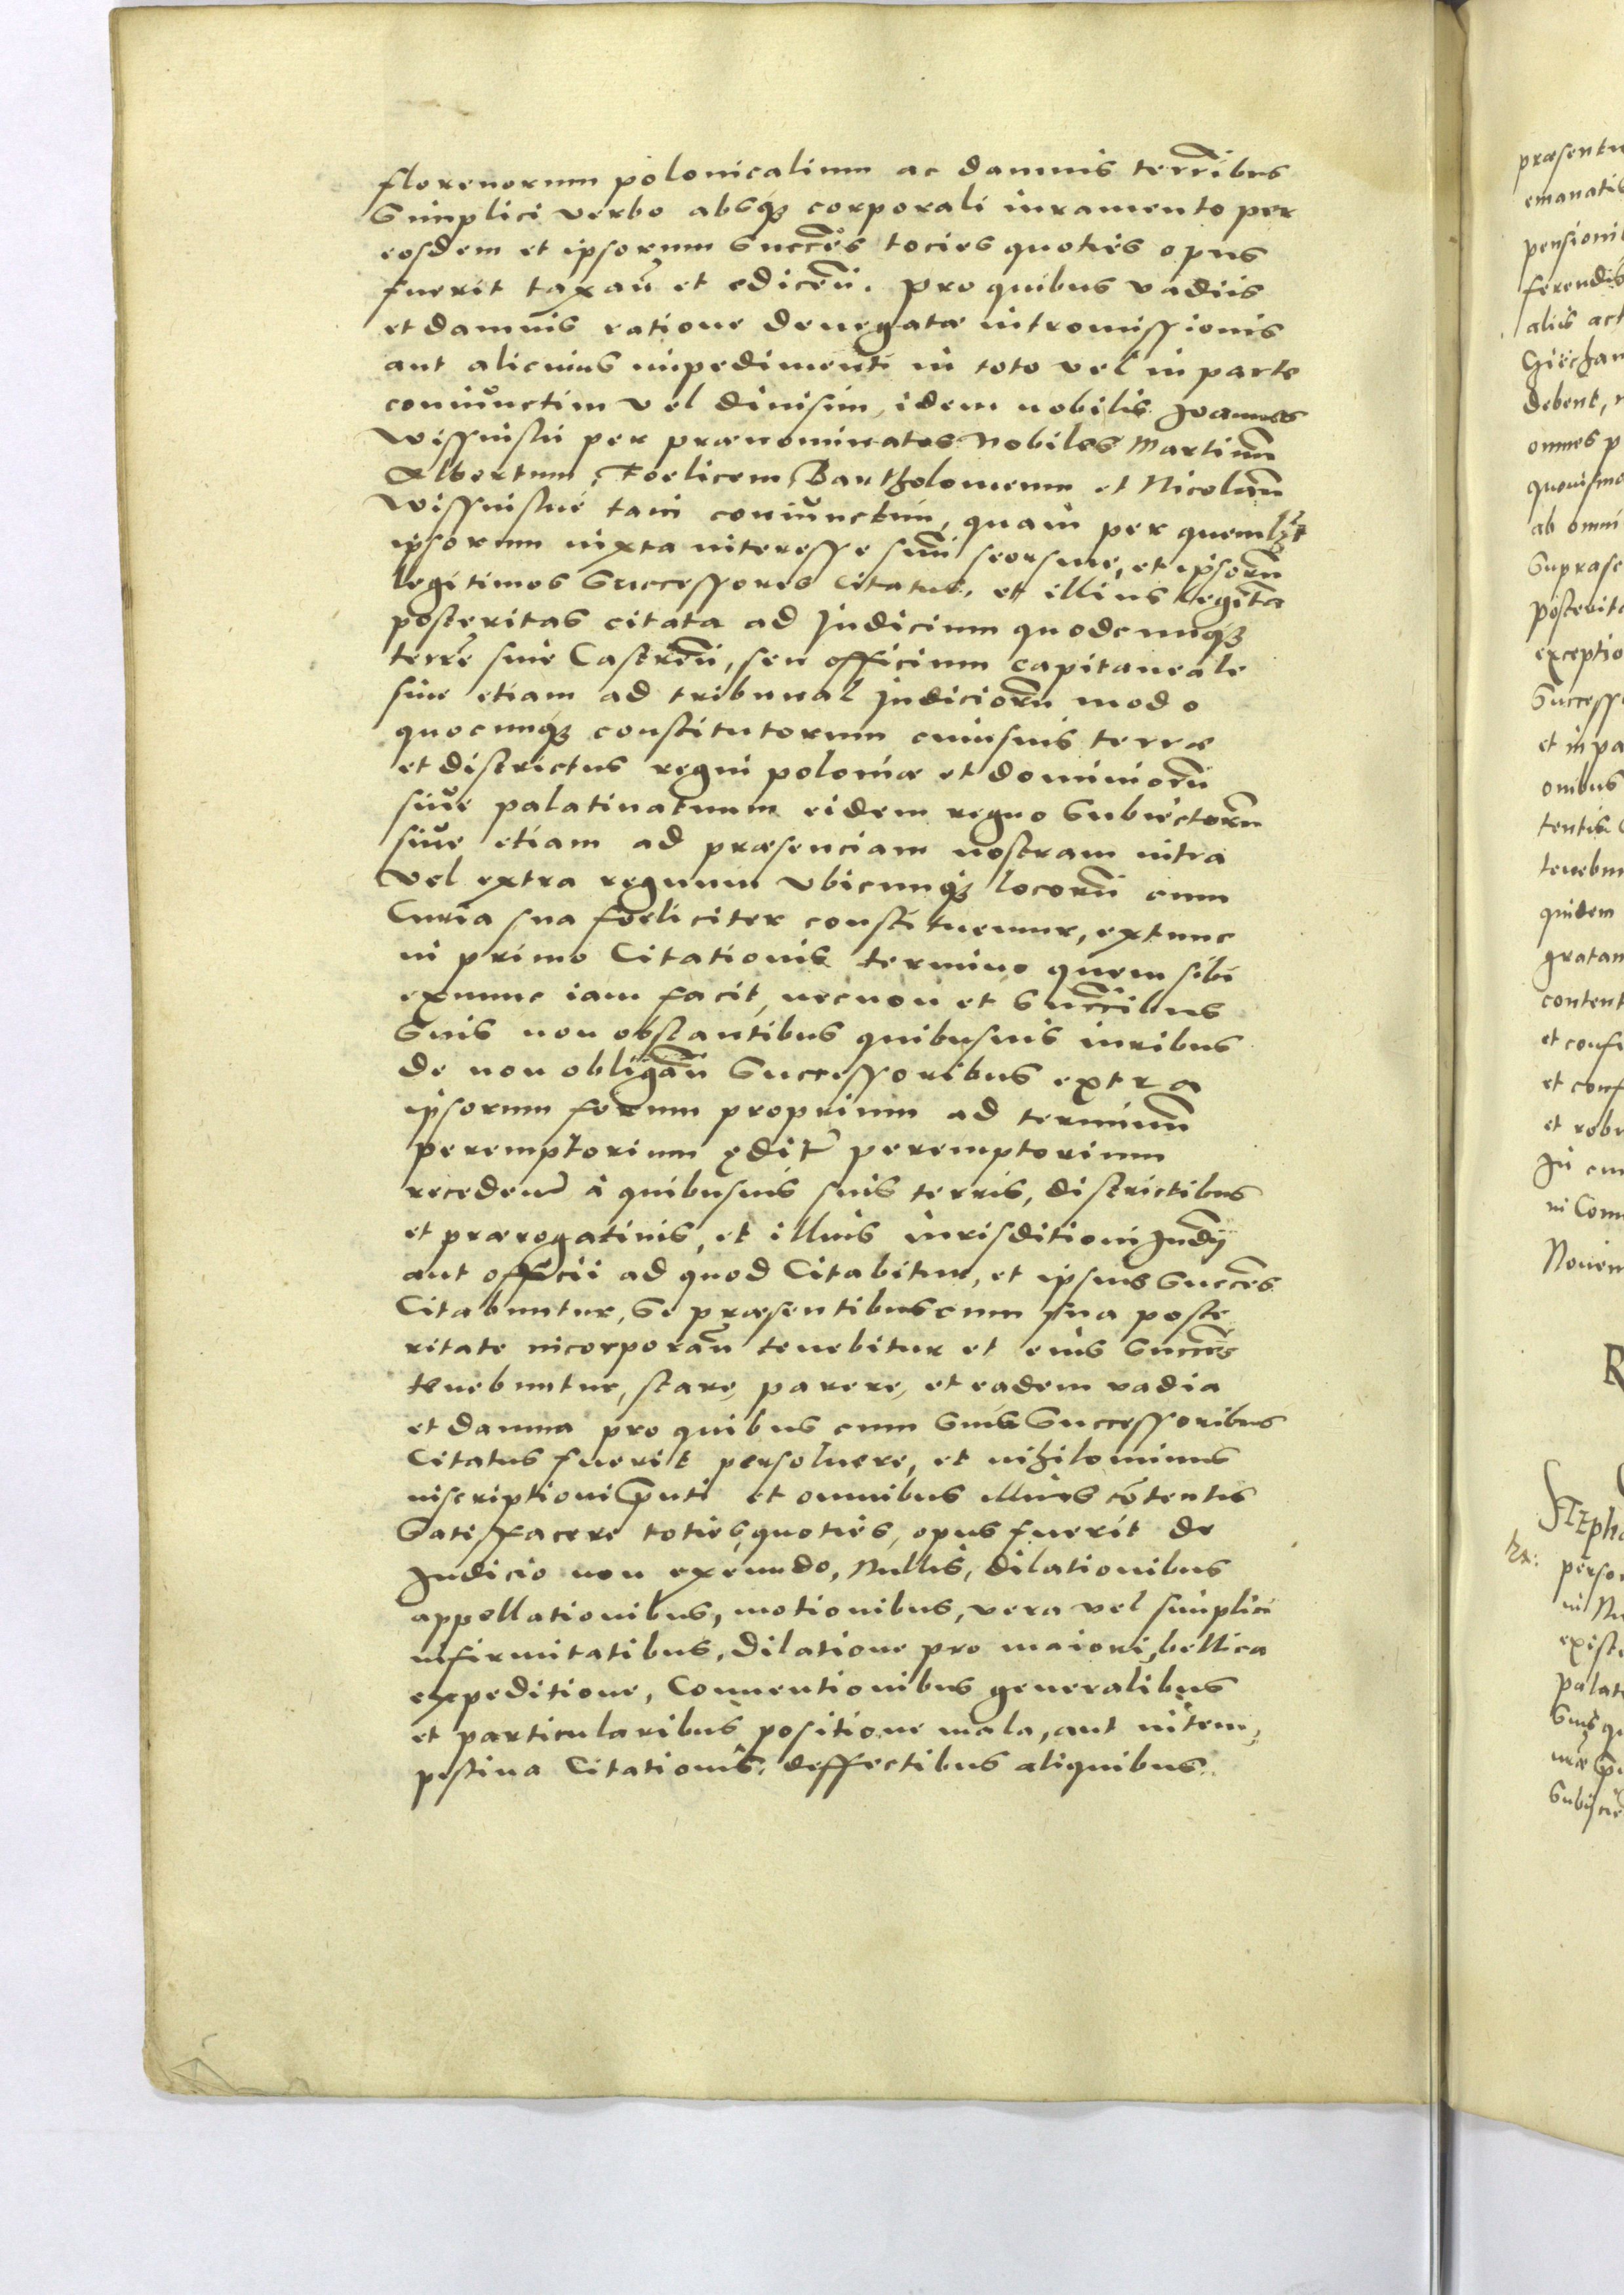 florenorum polonicalium ac damnis terrībus
Simplici verbo absq3 corporali iuramento per
eosdem et ipsorum Succēs tocies quoties opus
fuerit taxan̄ et edicen̄. pro quibus vadiis
et damnis ratione denegatæ intromissionis
aut alicuius impedimenti in toto vel in parte
coniunctim vel diuisim, idem nobilis Joannes
per prænominatos Nobiles Martinū
Albertum, Foelicem, Bartholomeum et Nicolaū
tam coniunctim, quam per quemlꝫt
ipsorum iuxta interesse suū seorsiue, et ipsorū
legitimos Successores Citatus, et illius legitīa
posteritas citata ad Judicium quodcunq3
terrē siue Castren̄, seu officium capitaneale
siue etiam ad tribunal Judiciorū modo
quocunq3 constitutorum cuiusuis terræ
et districtus regni poloniæ et dominiorū
siue palatinatuum eidem regno Subiectorū
siue etiam ad præsenciam nostram intra
vel extra regnum vbicunq3 locorū cum
Curia sua foeliciter constituemur, extunc
in primo Citationis termino quem sibi
exnunc iam facit, necnon et Succībus
Suis non obstantibus quibusuis iuribus
de non obligan̄ Successoribus extra
ipsorum forum proprium ad terminū
peremptorium peremptorium
receden̄ à quibusuis suis terris, districtibus
et prærogatiuis, et illius iurisditioni Judÿ
aut officii ad quod Citabitur, et ipsius Succēs
Citabuntur, Se præsentibus cum sua poste
ritate incorporan̄ tenebitur et eius Succēs
tenebuntur, stare, parere, et eadem vadia
et damna pro quibus cum Suis Successoribus
Citatus fuerit persoluere, et nihilominus
inscriptioni p̄nti et omnibus illius cōtentis
Satisfacere toties, quoties, opus fuerit de
Judicio non exeundo, Nullis, dilationibus
appellationibus, motionibus, vera vel simplici
infirmitatibus, dilatione pro maiori, bellica
expeditione, Conuentionibus generalibus
et particularibus positione mala, aut intem,
pestiua Citationis, deffectibus aliquibus.
præsentiu
emanatis
ferendis
debent,
ab omni
exceptio
et in pa
onibus
quidem
gratan
content
et confi
et conf
et robo
Nouem
Stepha
perso
existe
palat